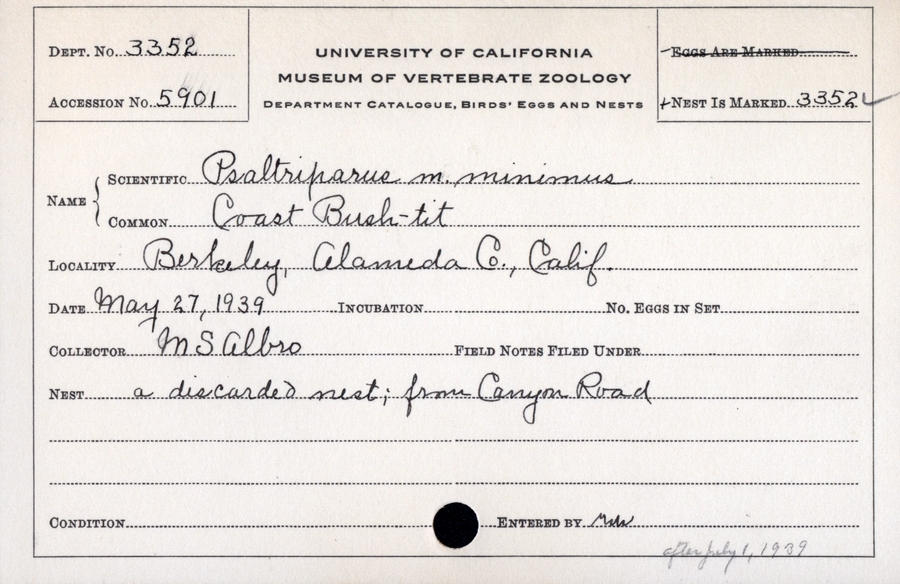 DEPT. NO. 3352
ACCESSION NO. 5901
UNIVERSITY OF CALIFORNIA
MUSEUM OF VERTEBRATE ZOOLOGY
DEPARTMENT CATALOGUE, BIRDS' EGGS AND NESTS
EGGS ARE MARKED
+NEST IS MARKED 3352 ✓
NAME
SCIENTIFIC Psaltriparus m. minimus
COMMON Coast Bush-tit
LOCALITY Berkeley, Alameda Co., Calif.
DATE May 27, 1939 INCUBATION NO. EGGS IN SET
COLLECTOR M S Albro FIELD NOTES FILED UNDER
NEST a discarded nest; from Canyon Road
CONDITION ENTERED BY
after July 1, 1939